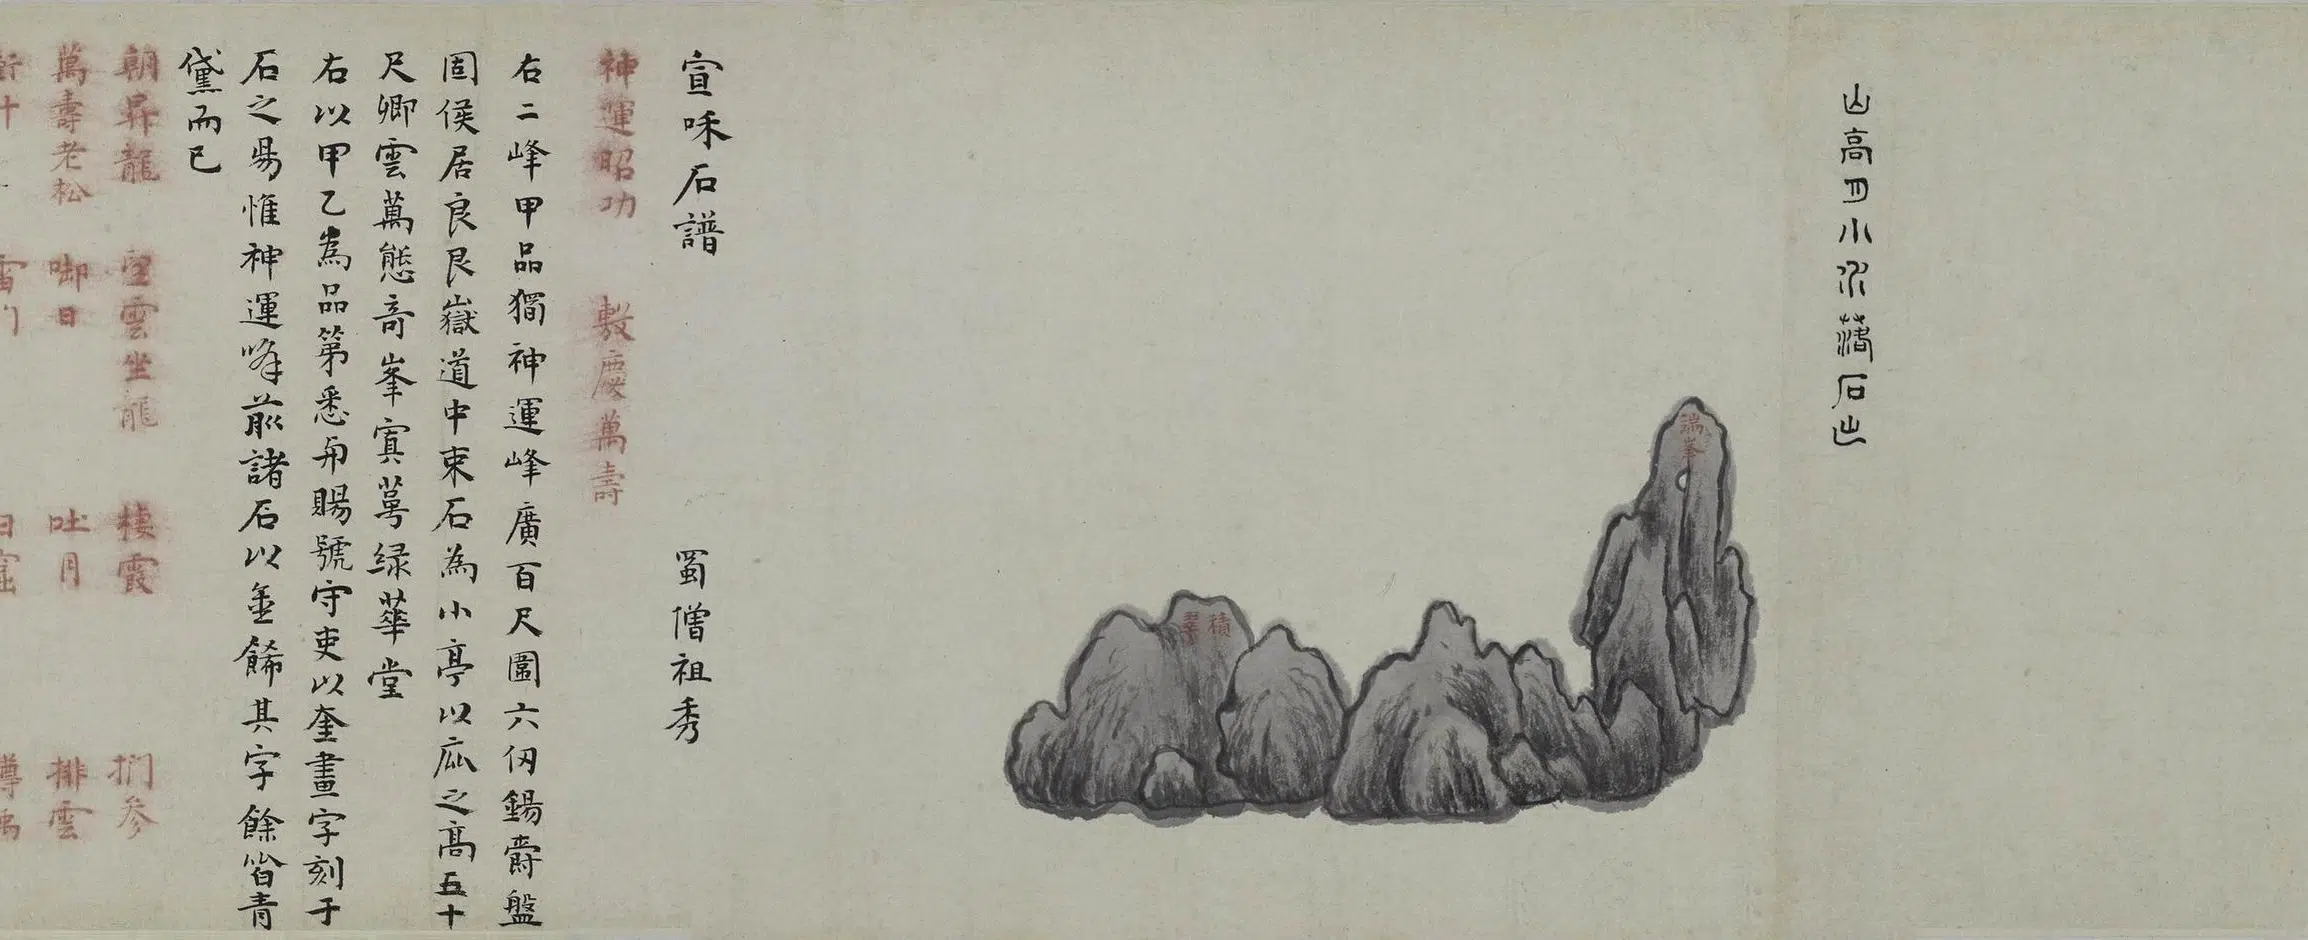 山高月小水落石出
端峯
積翠
宣和石譜
蜀僧祖秀
神運昭功 敷慶萬壽
右二峰甲品獨神運峰廣百尺圍六仞錫爵盤
固侯居良艮嶽道中束石為小亭以庇之高五十
尺卿雲萬態奇峯寘萼绿華堂
右以甲乙為品第悉與賜號守吏以奎畫字刻于
石之昜惟神運峰前諸石以金餙其字餘皆青
黛而已
朝昇龍 望雲坐龍 棲霞 捫参
萬壽老松 啣日 吐月 排雲